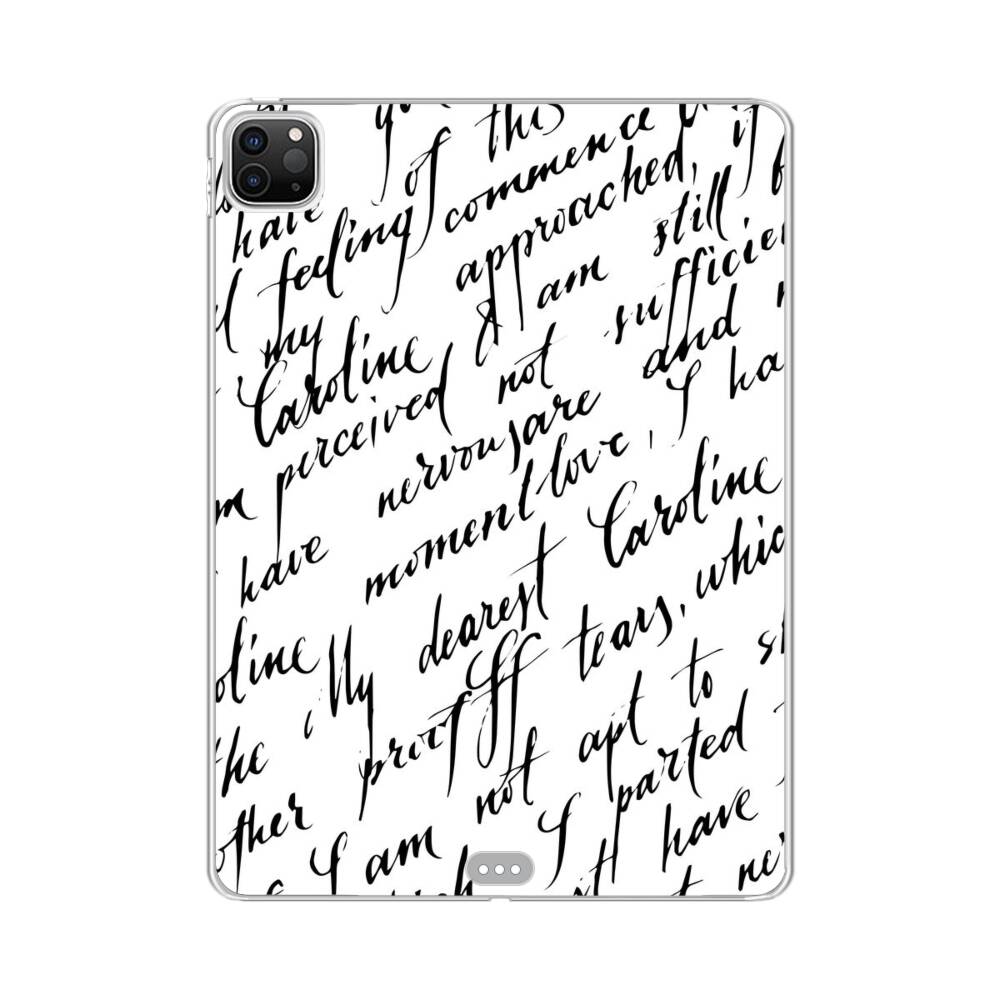 you
have of this
feeling commence if
my approached,
Caroline & am still
perceived not sufficien
nervous are and
have moment love, I ha
My dearest Caroline
oline proof tears, whic
the not apt to
other I am I parted
have